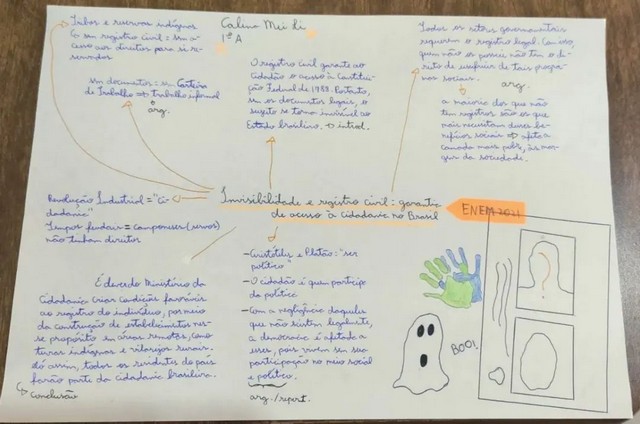 Tribos e reservas indígenas
s/ um registro civil = sem a-
cesso aos direitos para si re-
servados
sem documentos = sem Carteira
de Trabalho → trabalho informal
arg.
Calina Mei Li
1ª A
O registro civil garante ao
cidadão o acesso à Constitui-
ção Federal de 1988. Portanto,
sem os documentos legais, o
sujeito se torna invisível ao
Estado brasileiro. → introd.
Todos os setores governamentais
requerem o registro legal. Com isso,
quem não os possui não tem o di-
reito de usufruir de tais progra-
mas sociais.
arg.
a maioria dos que não
tem registros são os que
mais necessitam desses be-
nefícios sociais → afeta a
camada mais pobre, às mar-
gens da sociedade.
Invisibilidade e registro civil: garantia
de acesso à cidadania no Brasil
ENEM 2021
Revolução Industrial = "Ci-
dadania"
Tempos feudais = camponeses (servos)
não tinham direitos
É dever do Ministério da
Cidadania criar condições favoráveis
ao registro do indivíduo, por meio
da construção de estabelecimentos nes-
se propósito em áreas remotas, como
terras indígenas e vilarejos rurais.
Só assim, todos os residentes do país
farão parte da cidadania brasileira.
↳ Conclusão
- Aristóteles e Platão: "ser
político"
- O cidadão é quem participa
da política
- Com a negligência daqueles
que não existem legalmente,
a democracia é afetada a
esses, pois vivem sem sua
participação no meio social
e político.
arg./repert.
BOO!
?